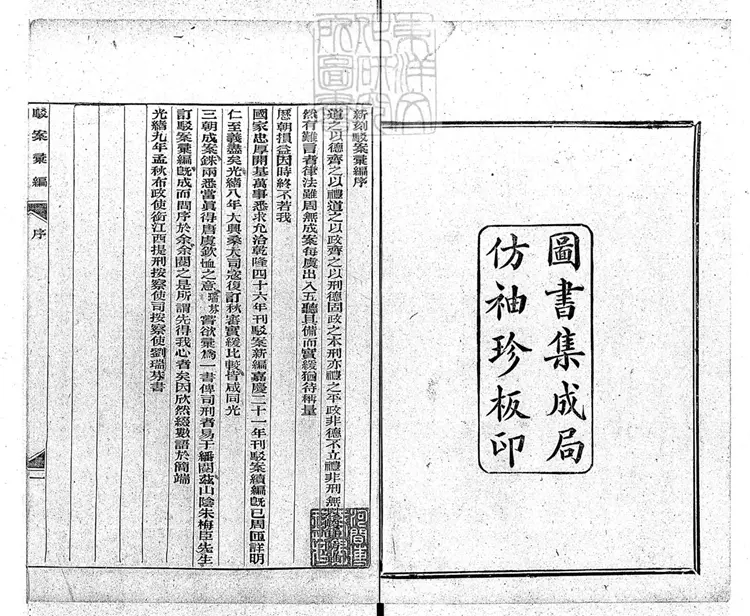 圖書集成局
仿袖珍板印
新刻駁案彙編序
道之以德齊之以禮道之以政齊之以刑德固政之本刑亦禮之平政非德不立禮非刑無
然有難言者律法雖周無成案每虞出入五聽具備而實緩猶待稱量
歷朝損益因時終不若我
國家忠厚開基萬事悉求允治乾隆四十六年刊駁案新編嘉慶二十一年刊駁案續編旣已周匝詳明
仁至義盡矣光緖八年大興桑大司寇復訂秋審實緩比較皆咸同光
三朝成案銖兩悉當眞得唐虞欽恤之意瑞芬嘗欲彙爲一書俾司刑者易于繙閱茲山陰朱梅臣先生
訂駁案彙編旣成而問序於余余閱之是所謂先得我心者矣因欣然綴數語於簡端
光緖九年孟秋布政使銜江西提刑按察使司按察使劉瑞芬書
駁案彙編
序
一